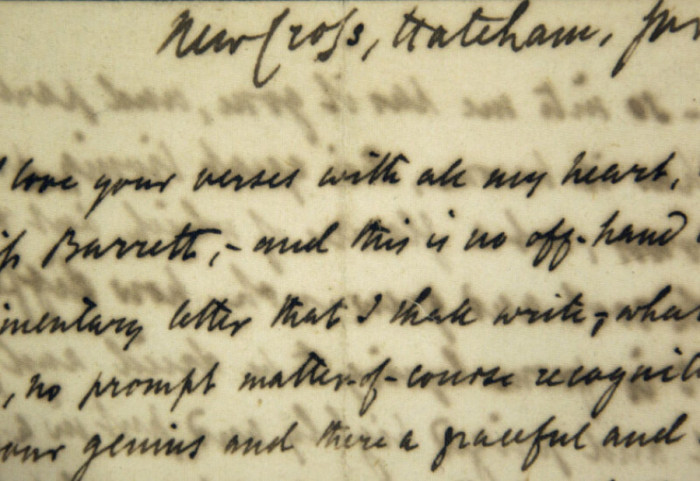 New Cross, Hatcham,
love your verses with all my heart,
Barrett,- and this is no off-hand
mentary letter that I shall write,- what
, no prompt matter-of-course recognit
our genius and there a graceful and